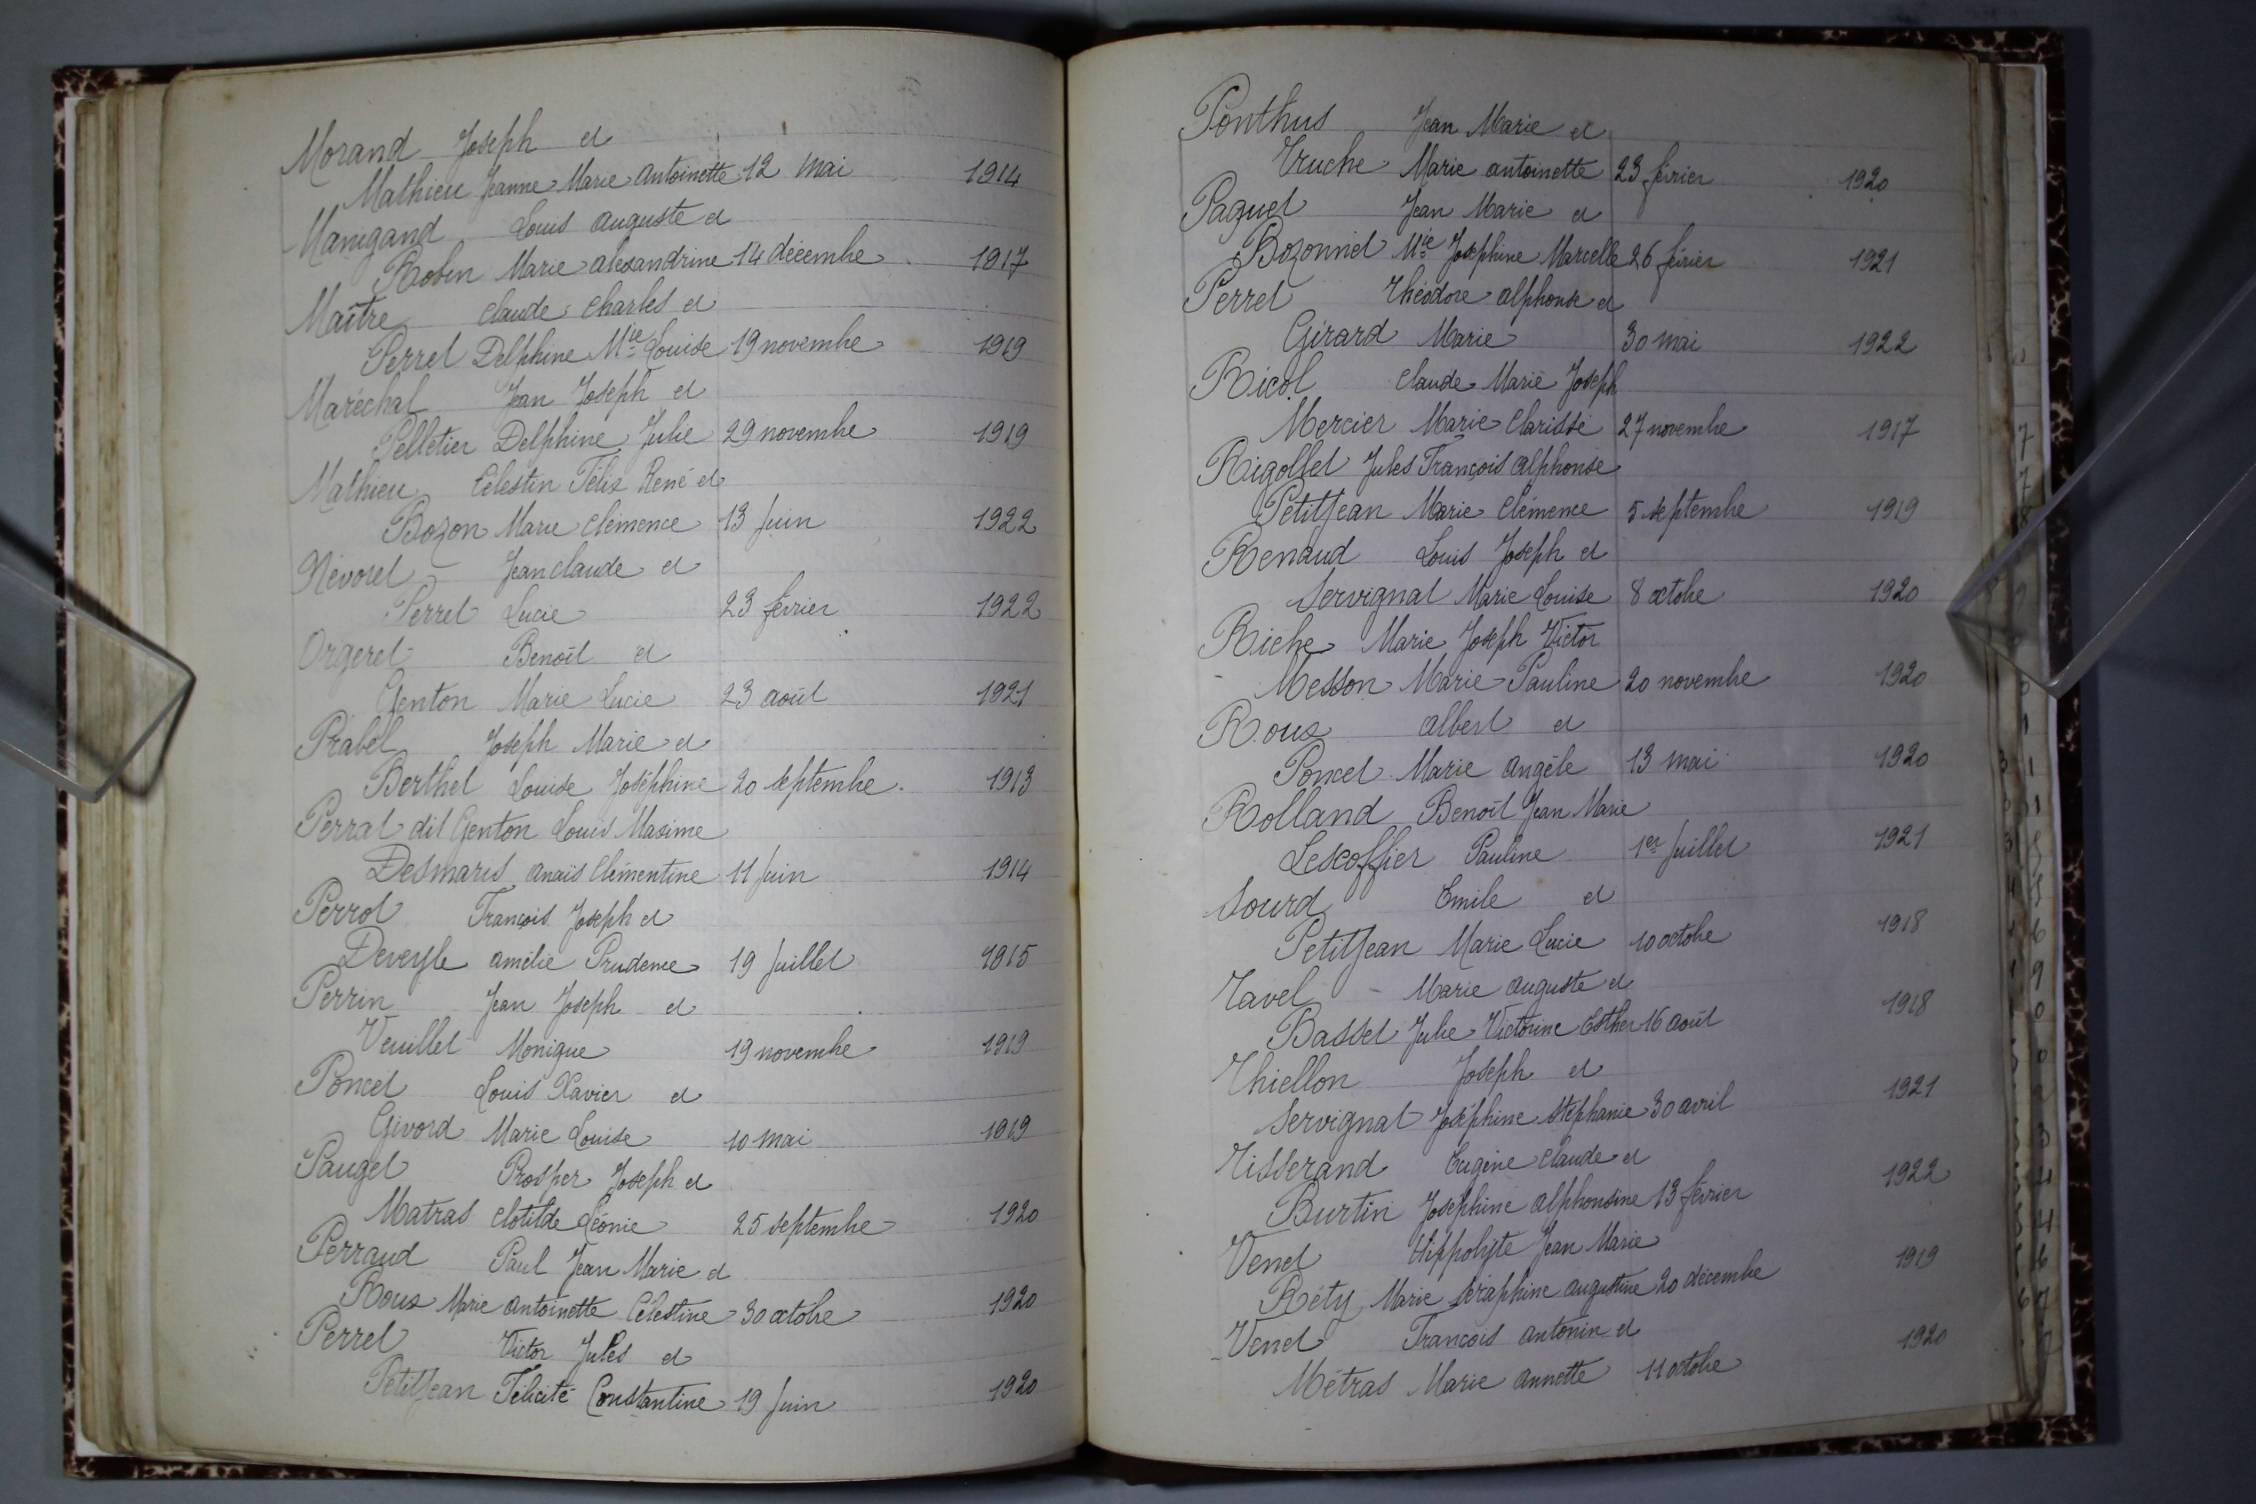 Morand Joseph et
Mathieu Jeanne Marie Antoinette 12 mai 1914
Manigand Louis Auguste et
Robin Marie Alexandrine 14 décembre 1917
Maître Claude Charles et
Perret Delphine Mie Louise 19 novembre 1919
Maréchal Jean Joseph et
Pelletier Delphine Julie 29 novembre 1919
Mathieu Célestin Félix René et
Bozon Marie Clémence 13 Juin 1922
Névoret Jean Claude et
Perret Lucie 23 février 1922
Orgeret Benoît et
Genton Marie Lucie 23 août 1921
Prabel Joseph Marie et
Berthet Louise Joséphine 20 septembre 1913
Perrat dit Genton Louis Maxime
Desmaris Anaïs Clémentine 11 Juin 1914
Perrot François Joseph et
Deveyle Amélie Prudence 19 Juillet 1915
Perrin Jean Joseph et
Veuillet Monique 19 novembre 1919
Poncet Louis Xavier et
Givord Marie Louise 10 mai 1919
Pauget Prosper Joseph et
Matras Clotilde Léonie 25 septembre 1920
Perraud Paul Jean Marie et
Roux Marie Antoinette Célestine 30 octobre 1920
Perret Victor Jules et
PetitJean Félicité Constantine 19 Juin 1920
Ponthus Jean Marie et
Truche Marie Antoinette 23 février 1920
Paquet Jean Marie et
Bozonnet Mie Joséphine Marcelle 26 février 1921
Perret Théodore Alphonse et
Girard Marie 30 mai 1922
Ricol Claude Marie Joseph
Mercier Marie Clarisse 27 novembre 1917
Rigollet Jules François Alphonse
PetitJean Marie Clémence 5 septembre 1919
Renaud Louis Joseph et
Servignat Marie Louise 8 octobre 1920
Riche Marie Joseph Victor
Messon Marie Pauline 20 novembre 1920
Roux Albert et
Poncet Marie Angèle 13 mai 1920
Rolland Benoît Jean Marie
Lescoffier Pauline 1er Juillet 1921
Sourd Emile et
PetitJean Marie Lucie 10 octobre 1918
Tavel Marie Auguste et
Basset Julie Victorine Esther 16 août 1918
Thiellon Joseph et
Servignat Joséphine Stéphanie 30 avril 1921
Tisserand Eugène Claude et
Burtin Joséphine Alphonsine 13 février 1922
Venet Hippolyte Jean Marie
Réty Marie Séraphine Augustine 20 décembre 1919
Venet François Antonin et
Métras Marie Annette 11 octobre 1920